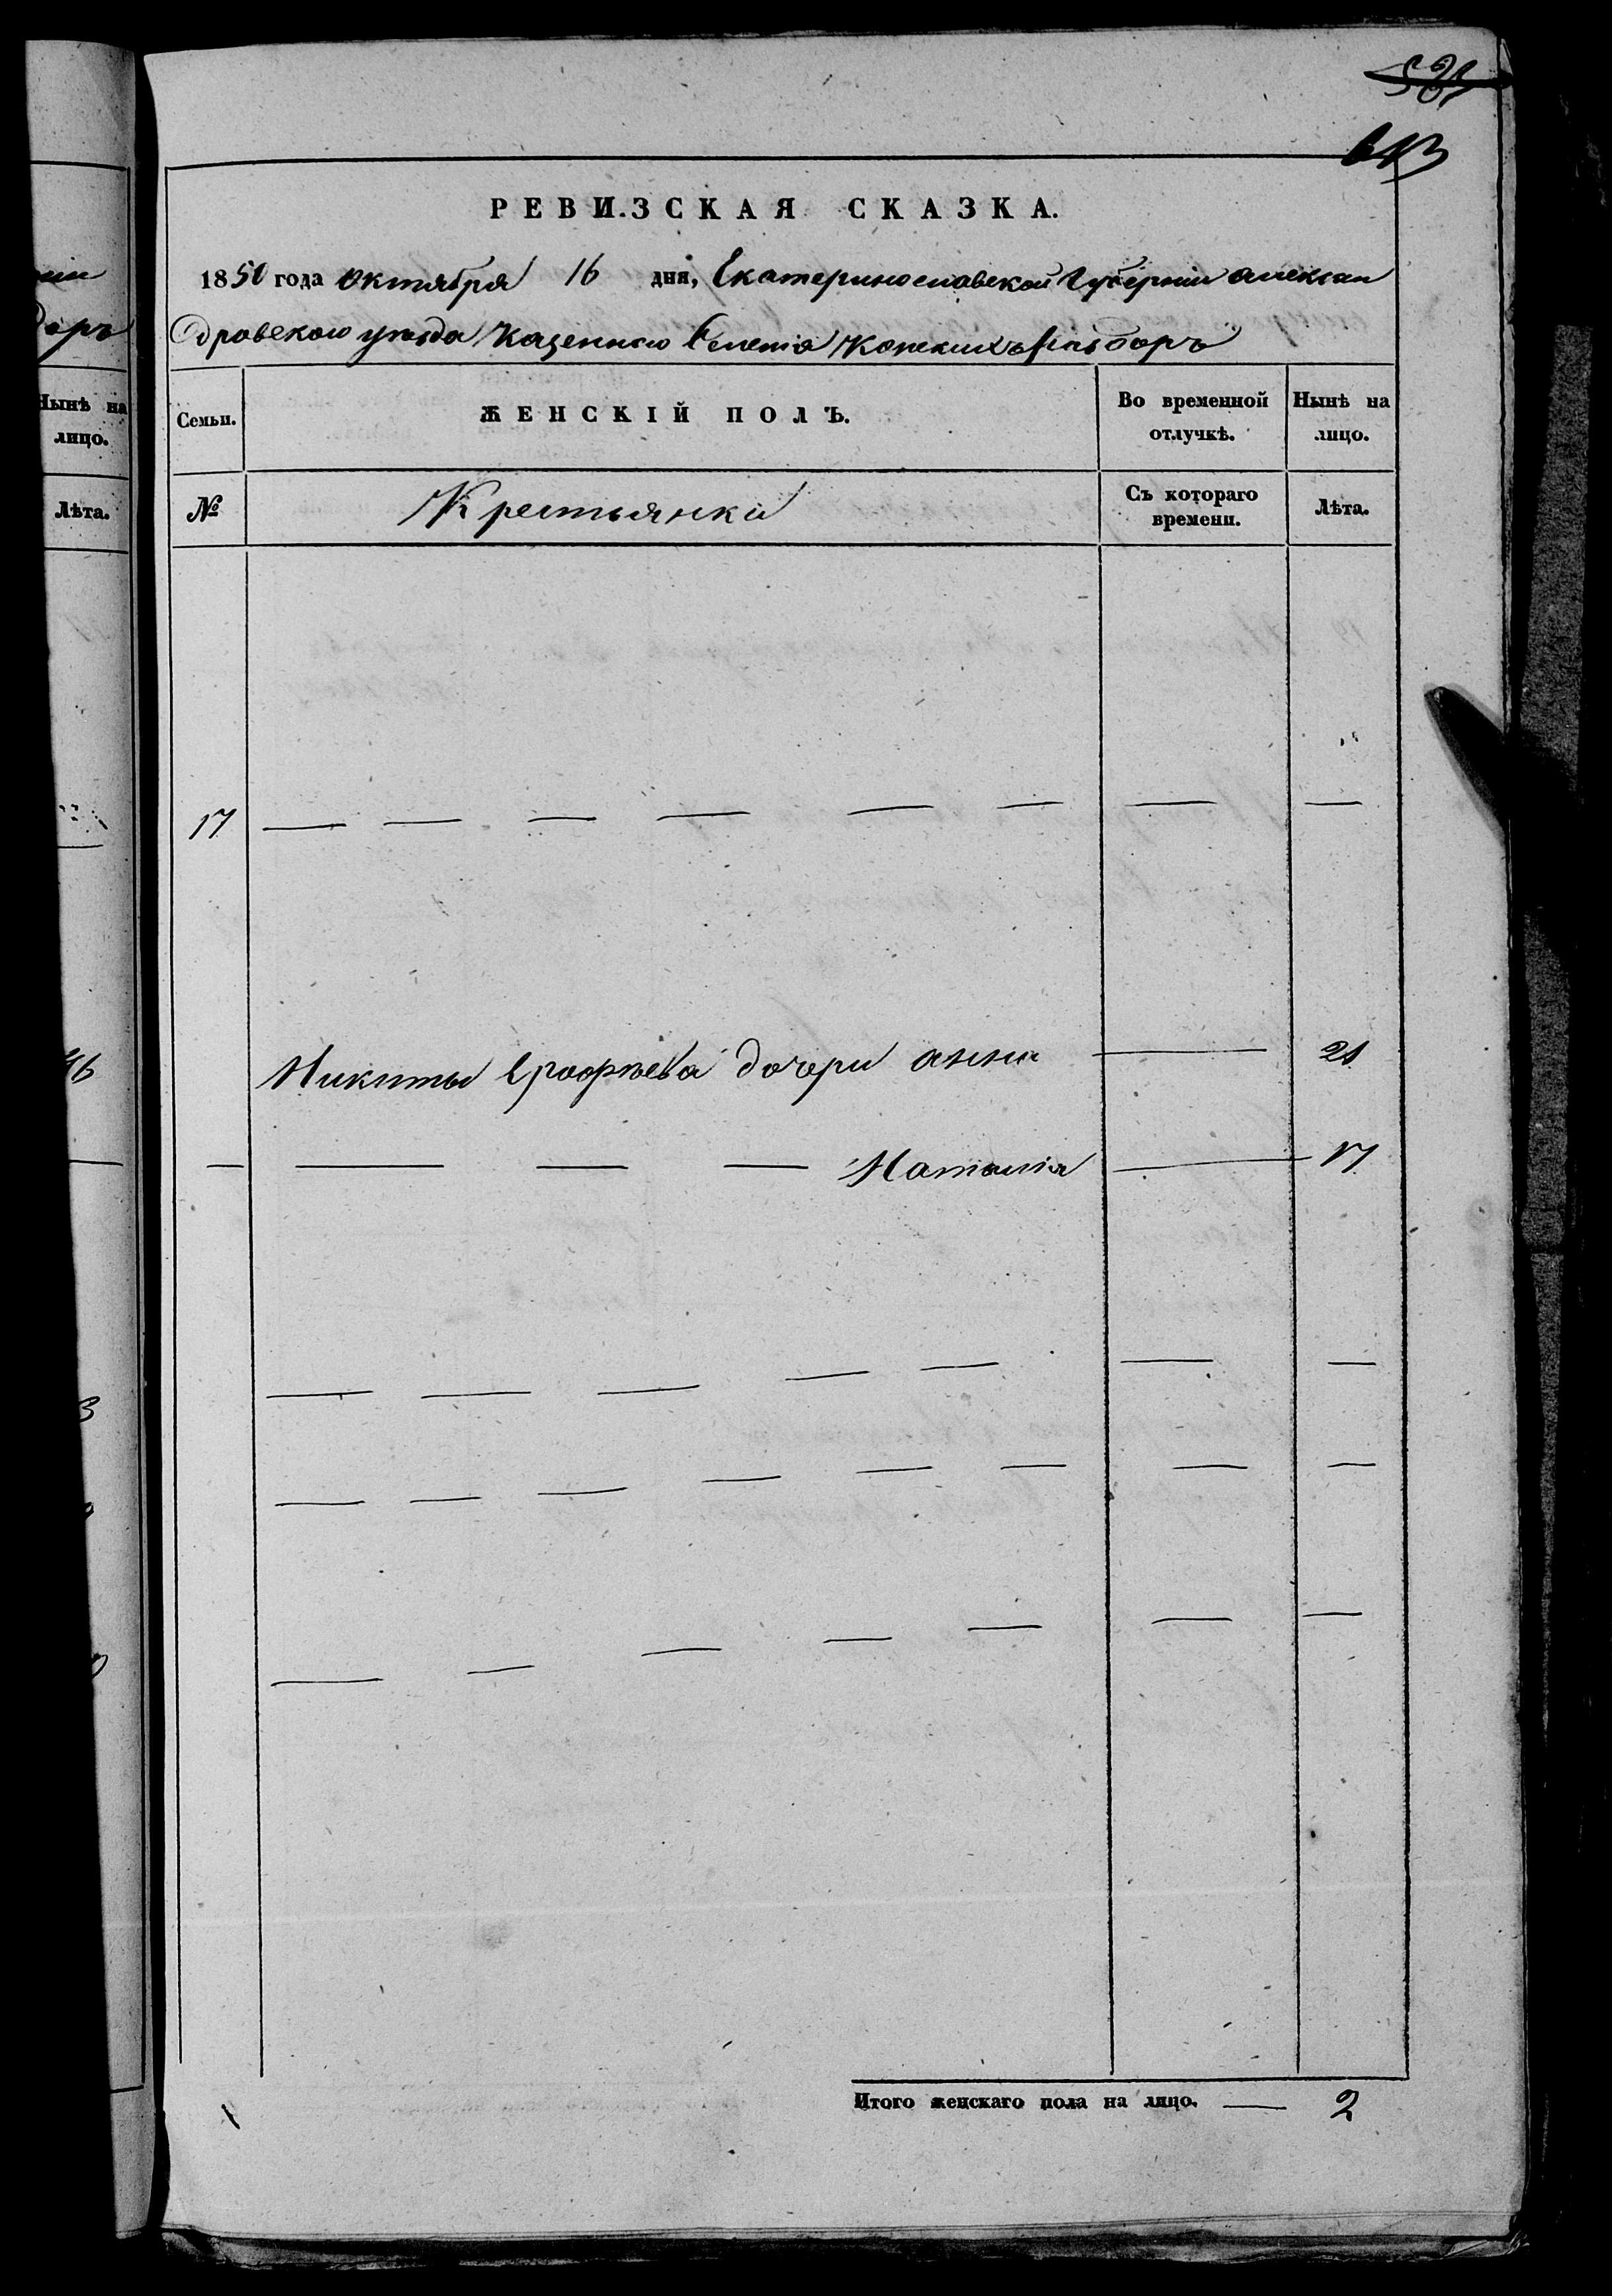 643
РЕВИЗСКАЯ СКАЗКА.
1850 года октября 16 дня, Екатеринославской Губерніи Алексан
дровскаго уѣзда казеннаго селенія Конскихъ Раздоръ
Семьи. ЖЕНСКІЙ ПОЛЪ. Во временной отлучкѣ. Нынѣ на лицо.
№ Крестьянки Съ котораго времени. Лѣта.
17 — — — — — — — —
Никиты Ерофѣева дочери анна — 21
— — — — Наталія — 17
— — — — — — —
— — — — — — — —
— — — — — — —
Итого женскаго пола на лицо. — 2
Нынѣ на
лицо.
Лѣта.